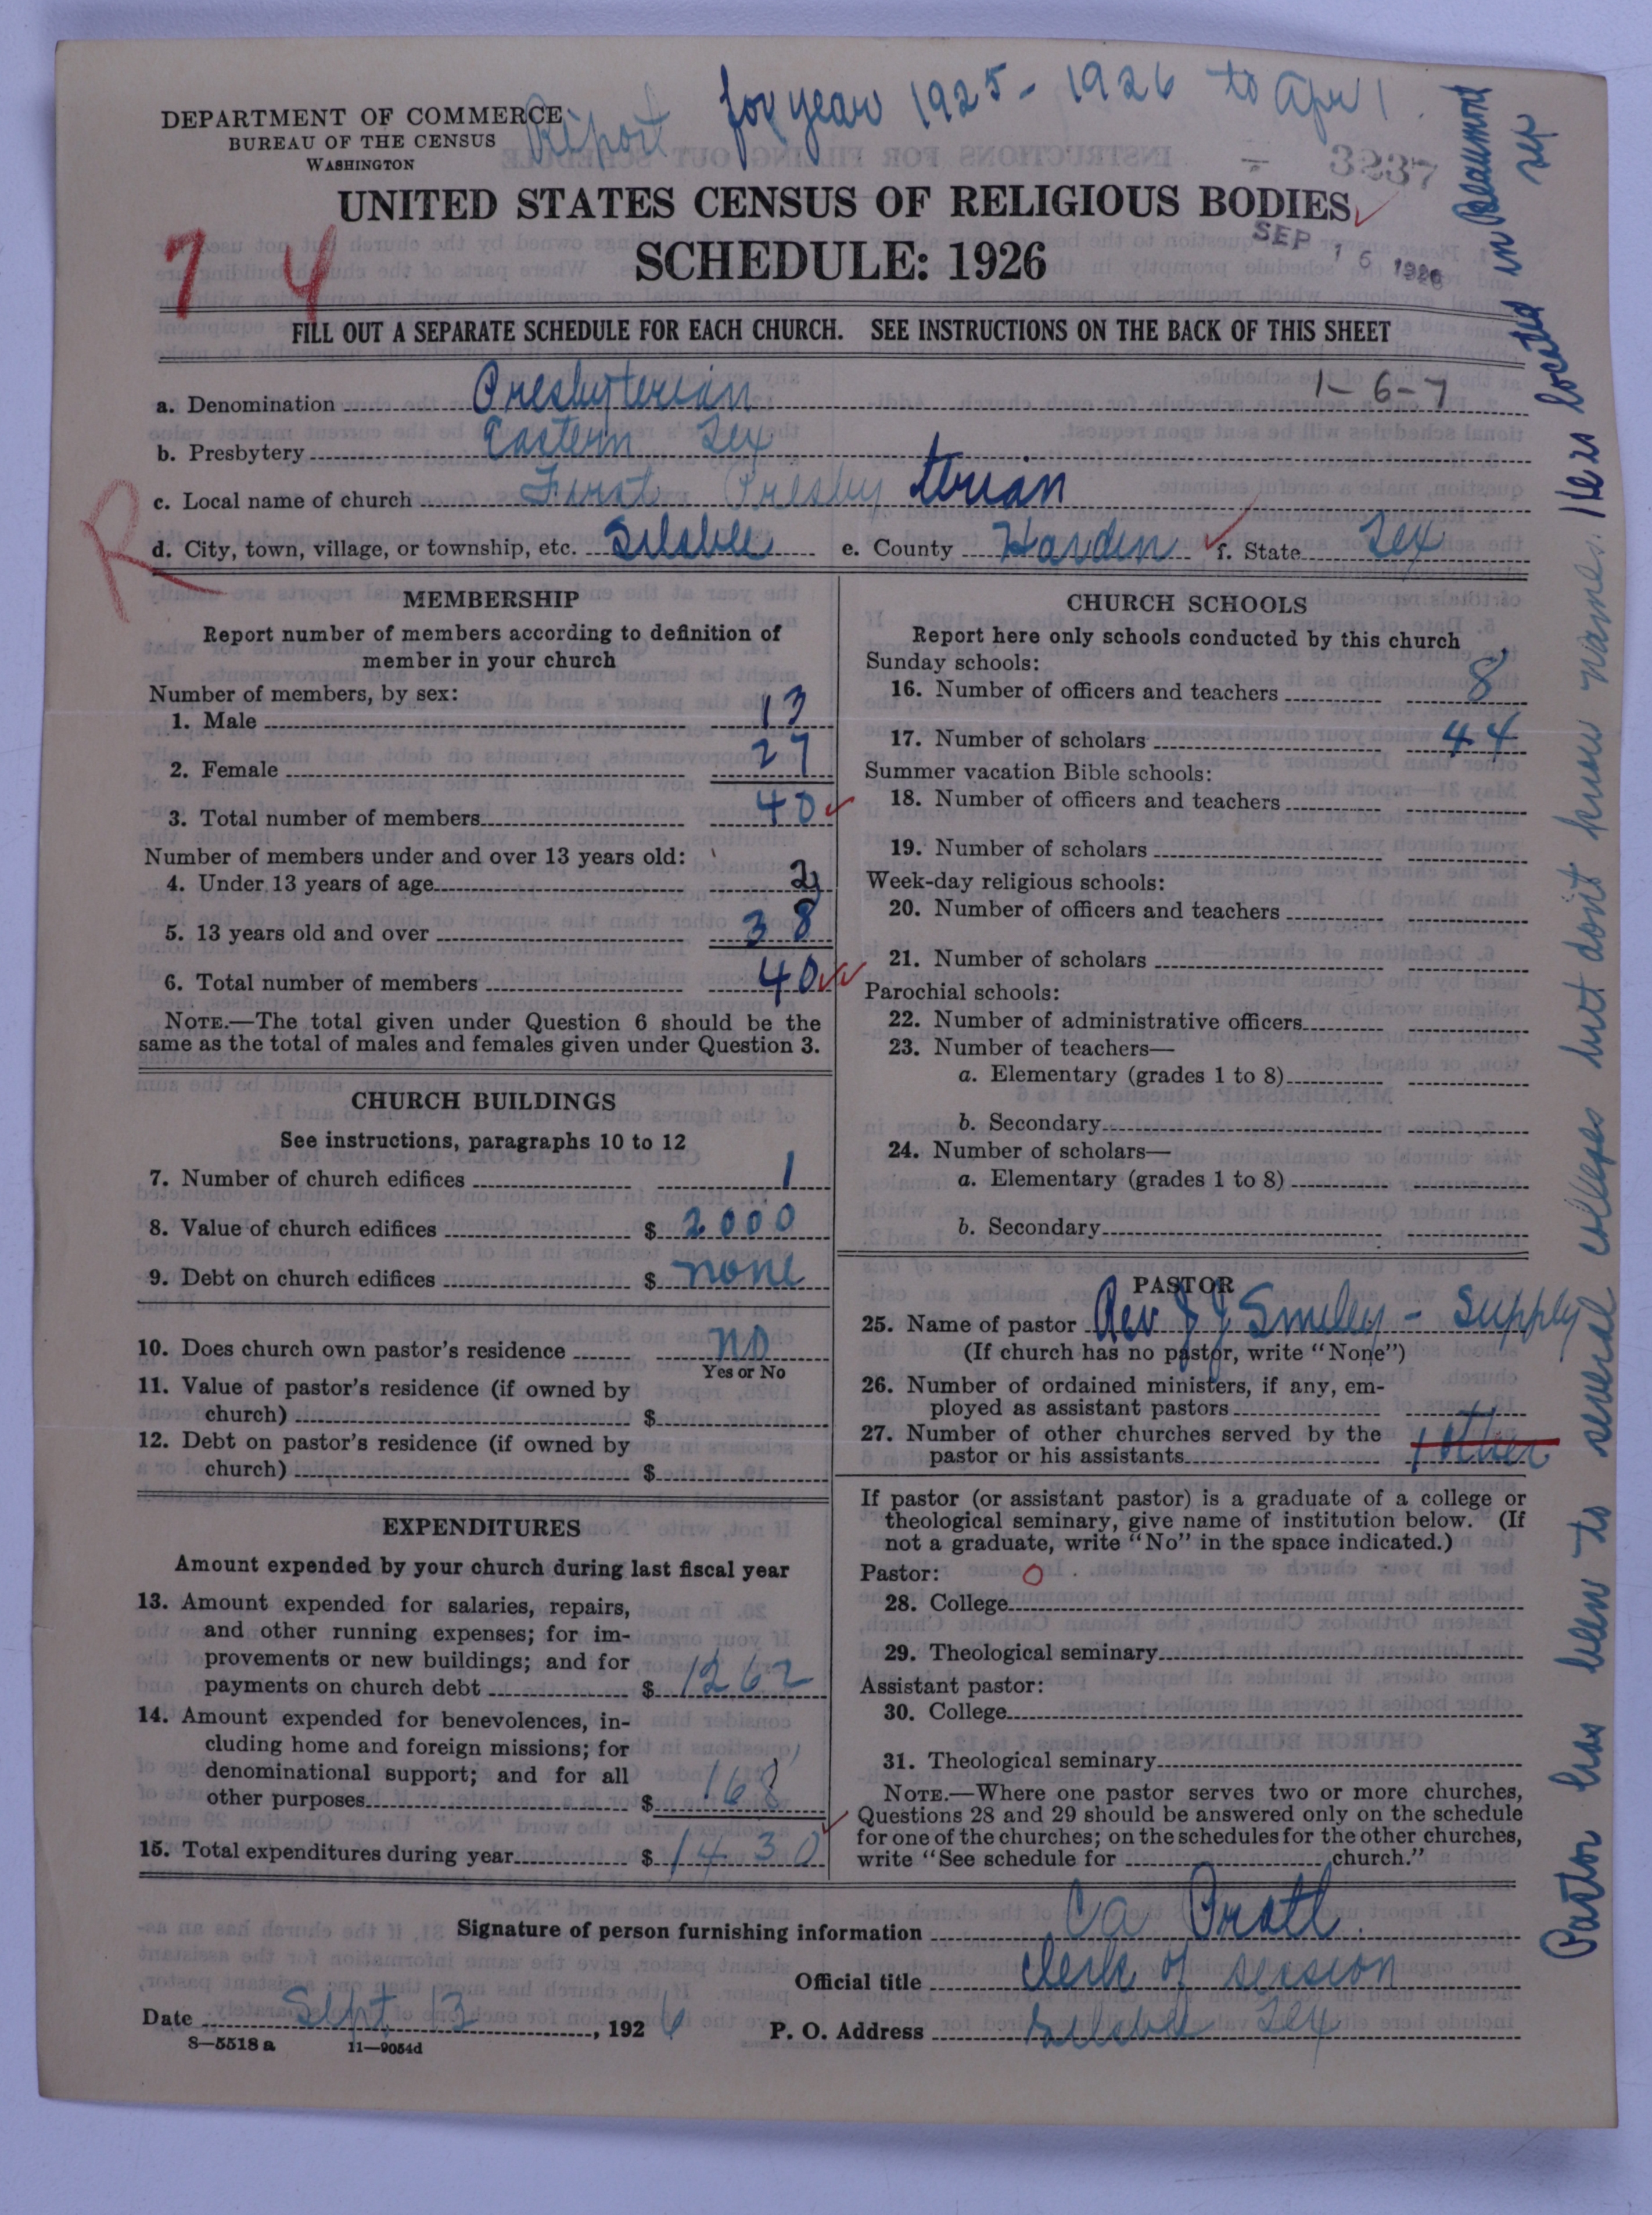 Report for year 1925-1926 to Apr 1.
DEPARTMENT OF COMMERCE
BUREAU OF THE CENSUS
WASHINGTON
3237
UNITED STATES CENSUS OF RELIGIOUS BODIES
SEP 16 1926
SCHEDULE: 1926
7 4
FILL OUT A SEPARATE SCHEDULE FOR EACH CHURCH. SEE INSTRUCTIONS ON THE BACK OF THIS SHEET
1-6-7
a. Denomination Presbyterian
b. Presbytery Eastern Tex
c. Local name of church First Presbyterian
R
d. City, town, village, or township, etc. Silsbee e. County Hardin f. State Tex
MEMBERSHIP
Report number of members according to definition of
member in your church
Number of members, by sex:
1. Male 13
2. Female 27
3. Total number of members 40
Number of members under and over 13 years old:
4. Under 13 years of age 2
5. 13 years old and over 38
6. Total number of members 40
NOTE.—The total given under Question 6 should be the
same as the total of males and females given under Question 3.
CHURCH BUILDINGS
See instructions, paragraphs 10 to 12
7. Number of church edifices 1
8. Value of church edifices $ 2000
9. Debt on church edifices $ none
10. Does church own pastor's residence no
Yes or No
11. Value of pastor's residence (if owned by
church) $
12. Debt on pastor's residence (if owned by
church) $
EXPENDITURES
Amount expended by your church during last fiscal year
13. Amount expended for salaries, repairs,
and other running expenses; for im-
provements or new buildings; and for
payments on church debt $ 1262
14. Amount expended for benevolences, in-
cluding home and foreign missions; for
denominational support; and for all
other purposes $ 168
15. Total expenditures during year $ 1430
CHURCH SCHOOLS
Report here only schools conducted by this church
Sunday schools:
16. Number of officers and teachers 8
17. Number of scholars 44
Summer vacation Bible schools:
18. Number of officers and teachers
19. Number of scholars
Week-day religious schools:
20. Number of officers and teachers
21. Number of scholars
Parochial schools:
22. Number of administrative officers
23. Number of teachers—
a. Elementary (grades 1 to 8)
b. Secondary
24. Number of scholars—
a. Elementary (grades 1 to 8)
b. Secondary
PASTOR
25. Name of pastor Rev J J Smiley - Supply
(If church has no pastor, write "None")
26. Number of ordained ministers, if any, em-
ployed as assistant pastors
27. Number of other churches served by the
pastor or his assistants 1 other
If pastor (or assistant pastor) is a graduate of a college or
theological seminary, give name of institution below. (If
not a graduate, write "No" in the space indicated.)
Pastor: O
28. College
29. Theological seminary
Assistant pastor:
30. College
31. Theological seminary
NOTE.—Where one pastor serves two or more churches,
Questions 28 and 29 should be answered only on the schedule
for one of the churches; on the schedules for the other churches,
write "See schedule for church."
Signature of person furnishing information CA Pratt.
Official title Clerk of session
Date Sept 13, 1926 P. O. Address Silsbee Tex
S—5518 a 11—9054d
Pastor has been to several colleges but dont know names. Hes located in Beaumont